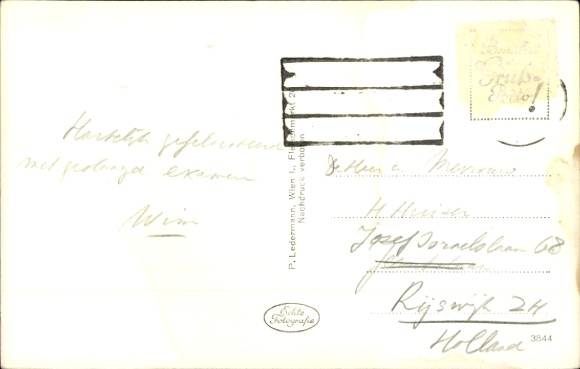 Hartelijk gefeliciteerd
met geslaagd examen
Wim
P. Ledermann, Wien I., Fleischmarkt 2
Nachdruck verboten
Echte
Fotografie
Benützet
Gruß-
Porto!
De Heer en Mevrouw
H
Jozef Israelslaan 68
Rijswijk ZH
Holland
3844